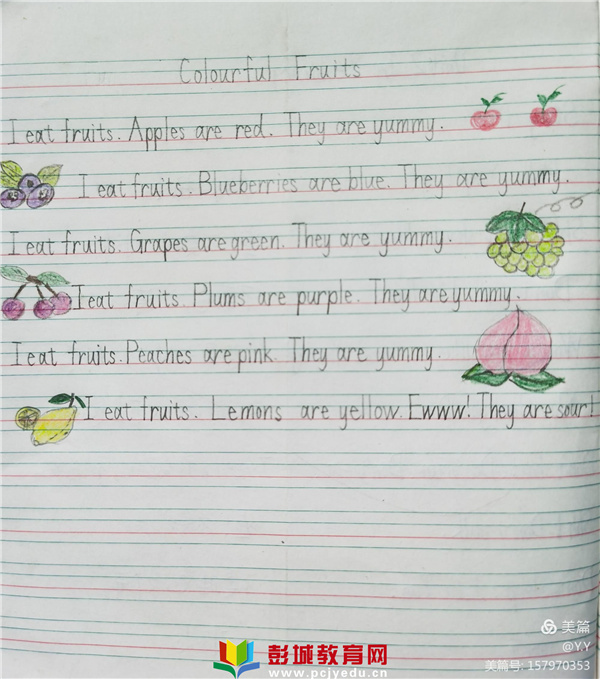 Colourful Fruits
I eat fruits. Apples are red. They are yummy.
I eat fruits. Blueberries are blue. They are yummy.
I eat fruits. Grapes are green. They are yummy.
I eat fruits. Plums are purple. They are yummy.
I eat fruits. Peaches are pink. They are yummy.
I eat fruits. Lemons are yellow. Ewww! They are sour!
美篇
@YY
美篇号: 157970353
彭城教育网
www.pcjyedu.com